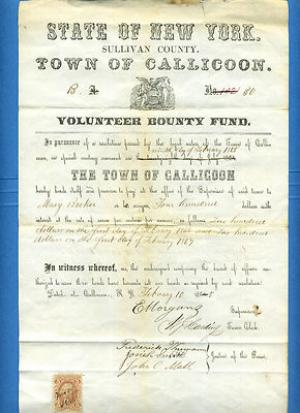 STATE OF NEW YORK.
SULLIVAN COUNTY.
TOWN OF CALLICOON.
B. A. No. 102 80
VOLUNTEER BOUNTY FUND.
In pursuance of a resolution passed by the legal voters of the Town of Calli-
coon, at special meeting convened on day of February 1865
THE TOWN OF CALLICOON
hereby binds itself and promises to pay at the office of the Supervisor of said town to
Mary or bearer, Four hundred dollars with
interest at the rate of seven per centum per annum, as follows Two hundred
dollars on the first day of February 1866 and Two hundred
dollars on the first day of February 1867
In witness whereof, we, the undersigned comprising the board of officers au-
thorized to issue these bonds have hereunto set our hands as required by said resolution
Dated at Callicoon, N. Y. February 10 1865
E Morgans Supervisor
Town Clerk
Frederick
Justices of the Peace.
John C.